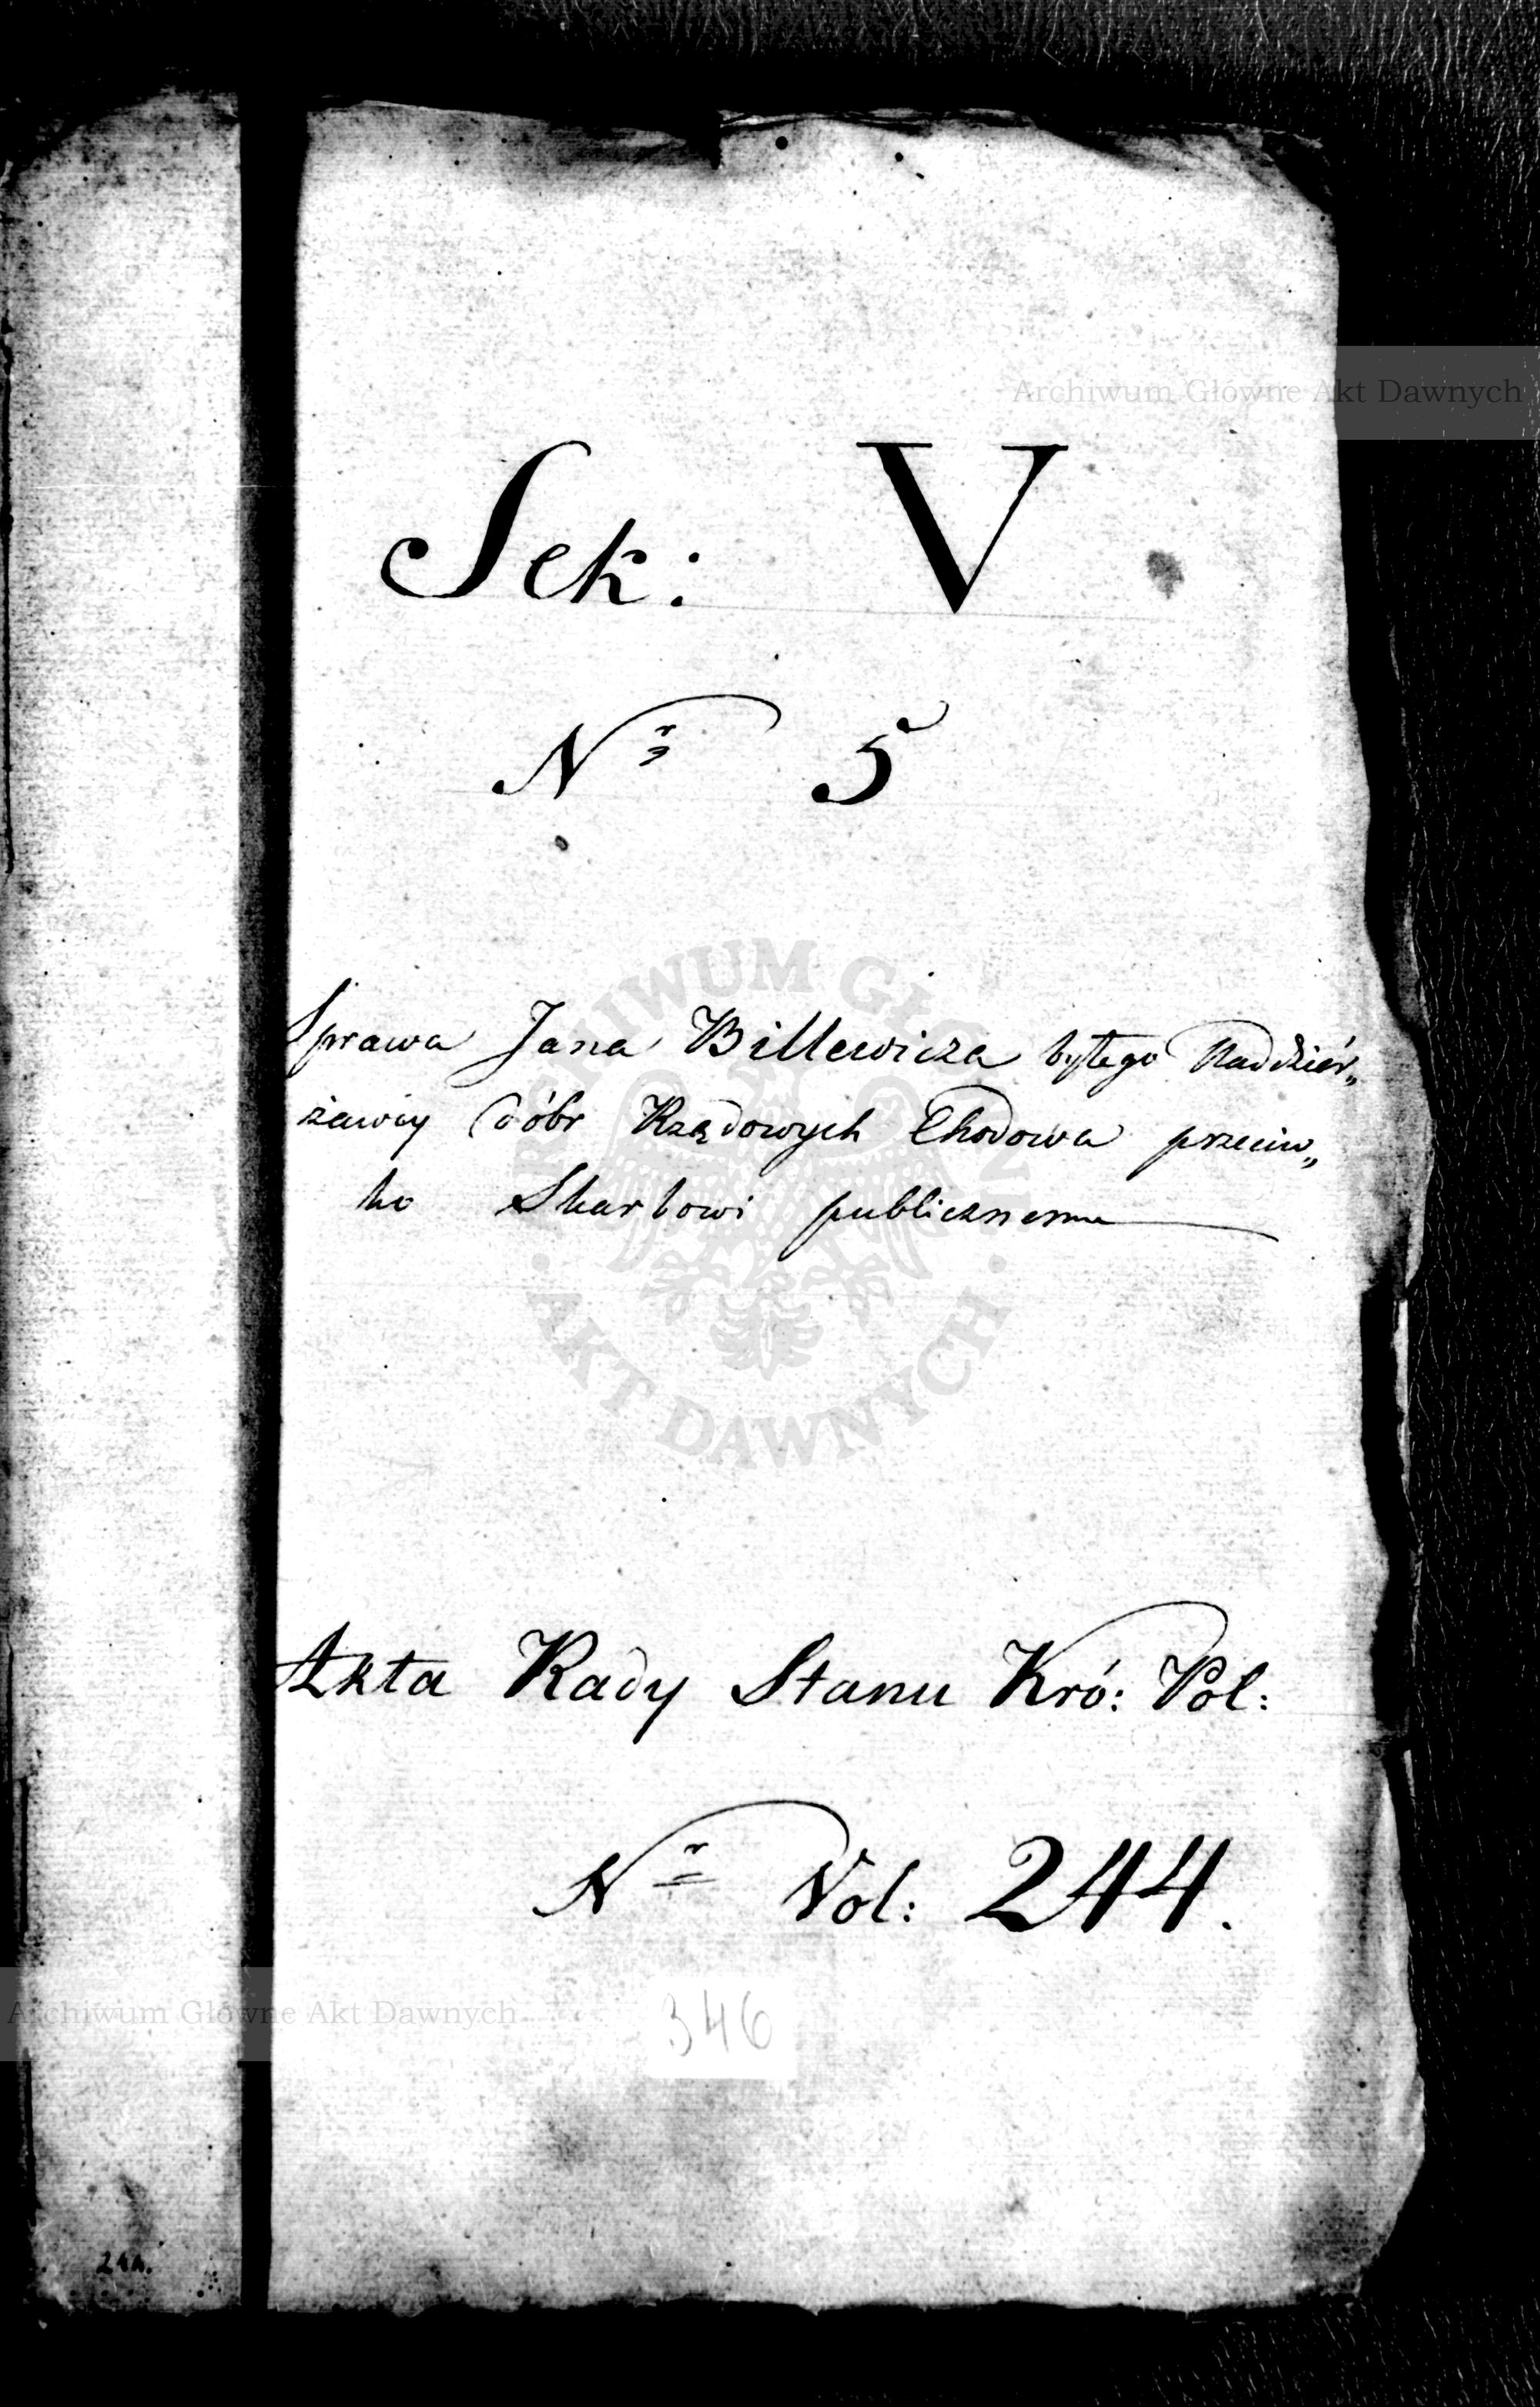 Archiwum Główne Akt Dawnych
Sek: V
Nr 5
ARCHIWUM GŁÓWNE AKT DAWNYCH
Sprawa Jana Billewicza byłego Naddziér„
żawcy dóbr Rządowych Chodowa przeciw„
ko Skarbowi publicznemu
Akta Rady Stanu Kró: Pol:
Nr Vol: 244.
346
Archiwum Główne Akt Dawnych
244.